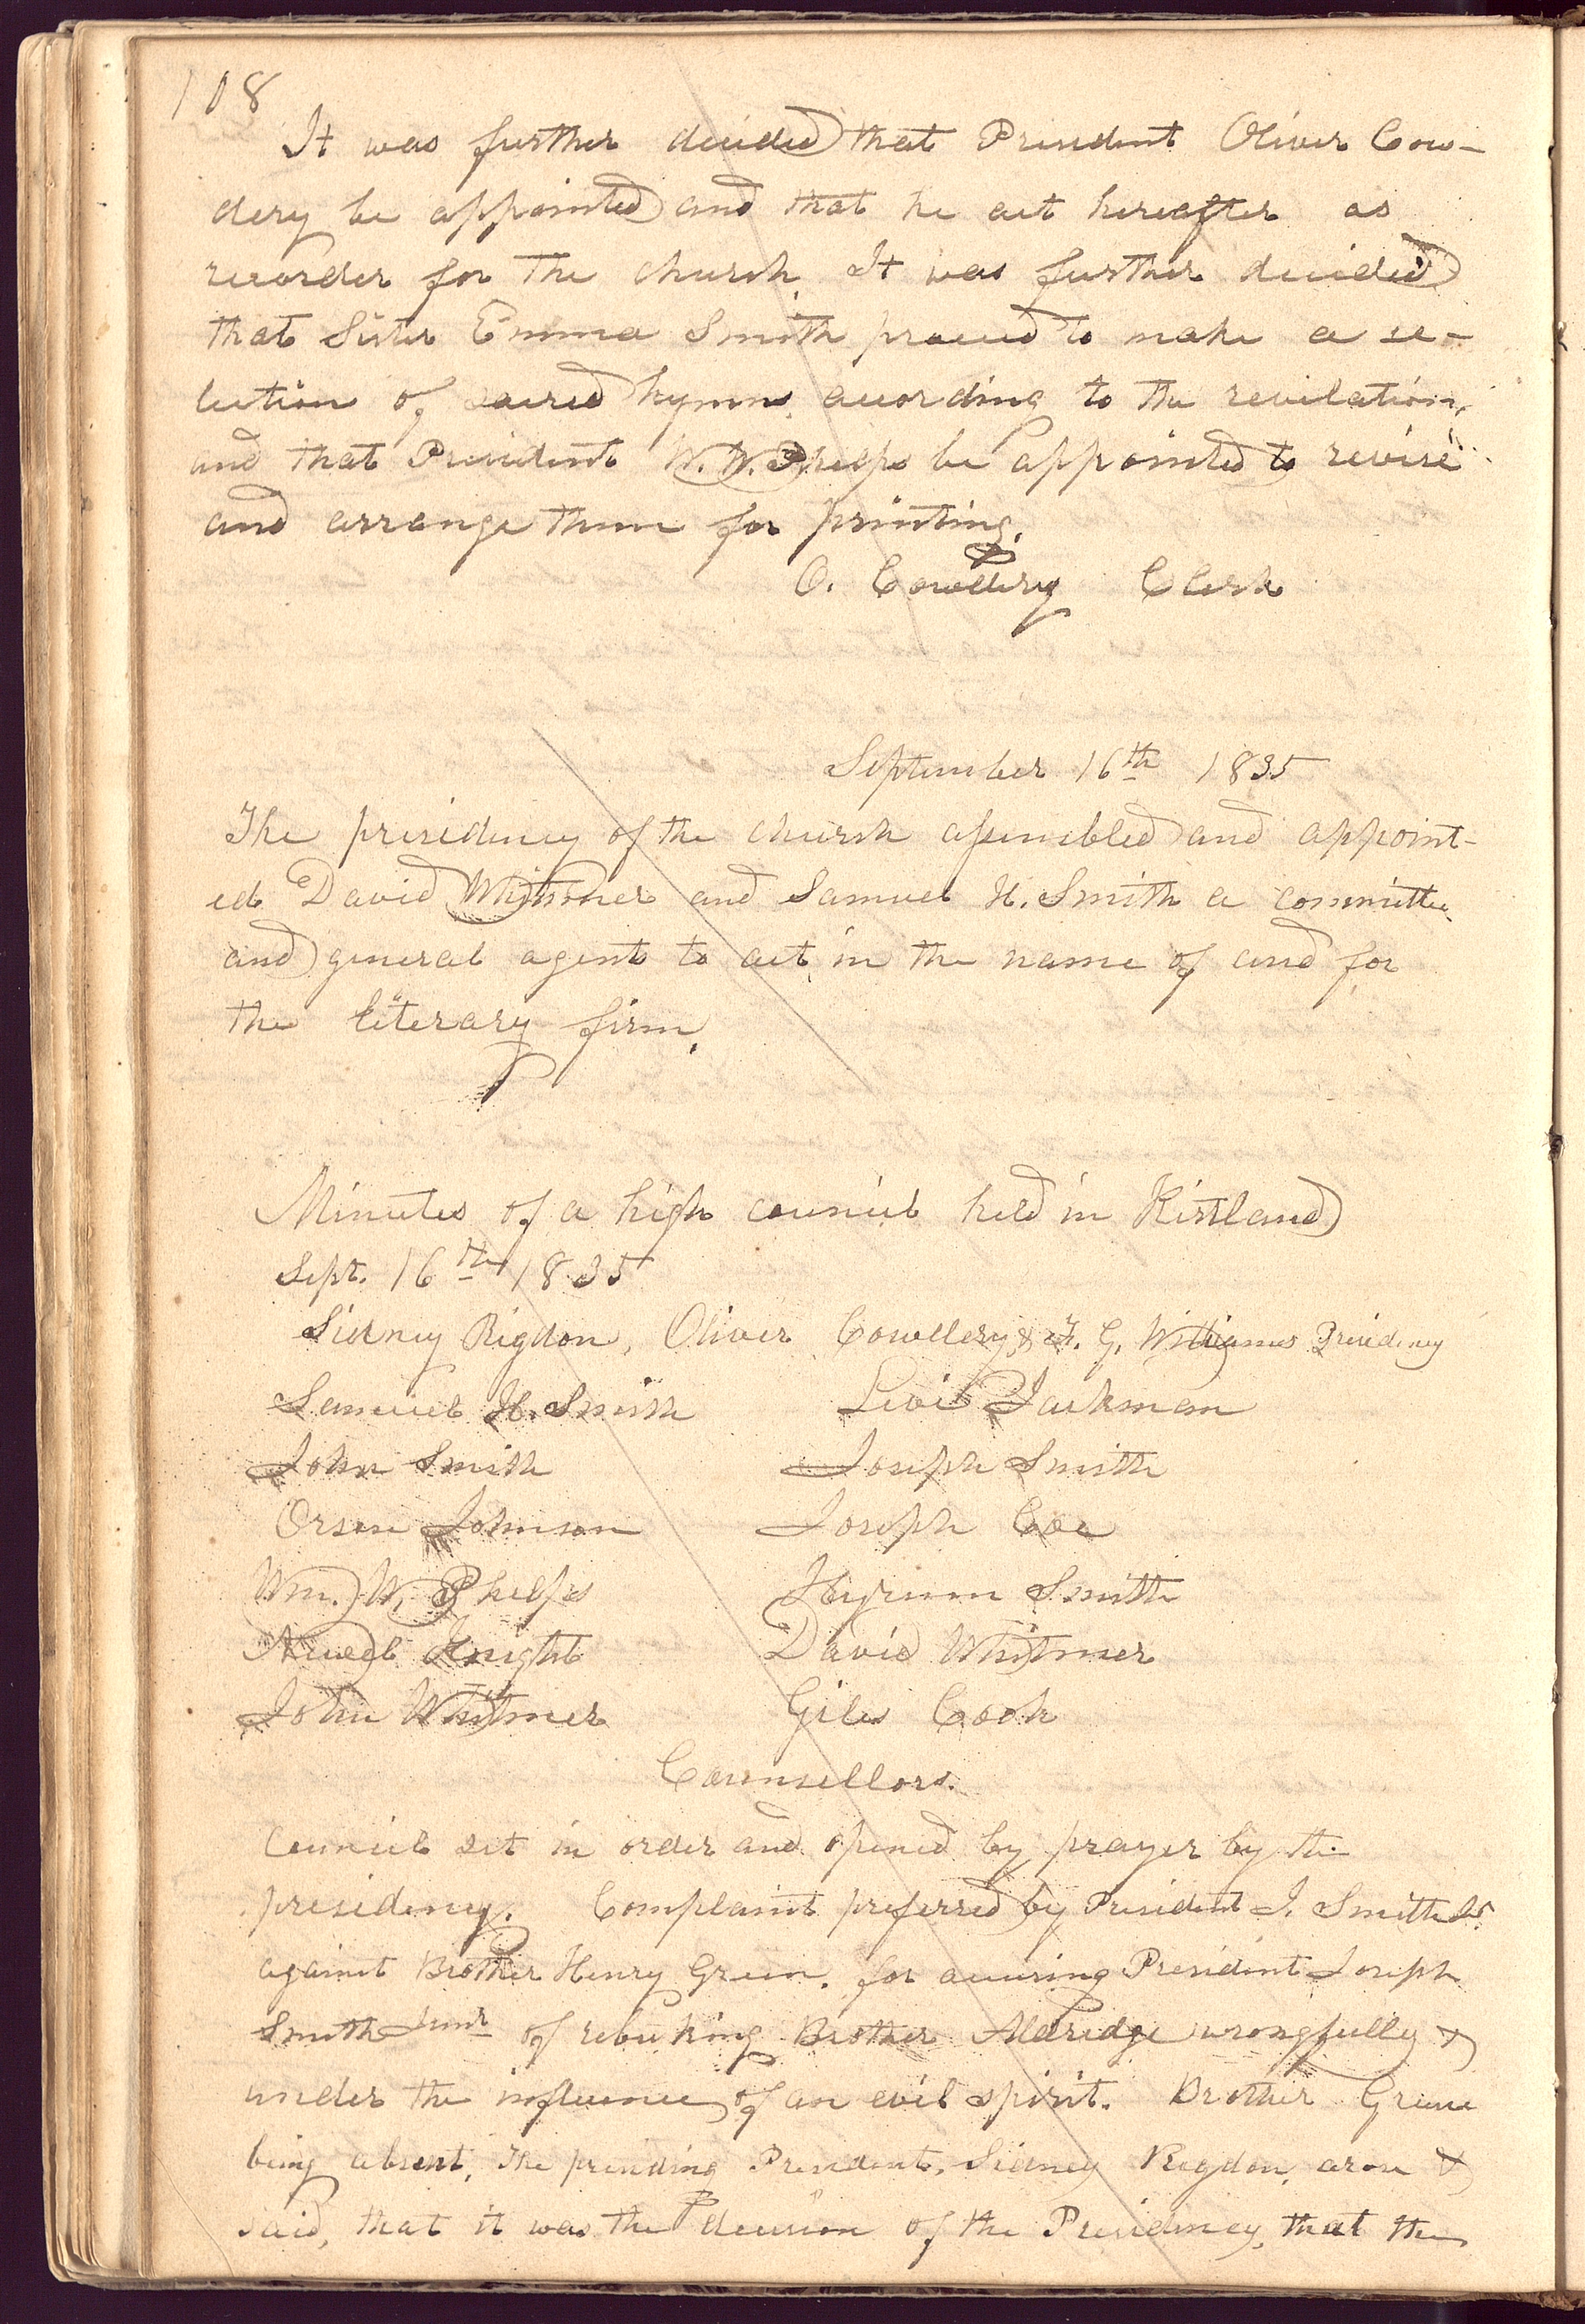 108
It was further decided that President Oliver Cow-
dery be appointed and that he act hereafter as
recorder for the church. It was further decided
that Sister Emma Smith proceed to make a se-
lection of sacred hymns, according to the revelation,
and that President W. W. Phelps be appointed to revise
and arrange them for printing.
O. Cowdery Clerk
September 16th 1835
The presidency of the church assembled and appoint-
ed David Whitmer and Samuel H. Smith a committee
and general agents to act in the name of and for
the literary firm.
Minutes of a high council held in Kirtland
Sept. 16th 1835
Sidney Rigdon, Oliver Cowdery, & F. G. Williams Presidency
Samuel H. Smith Levi Jackman
John Smith Joseph Smith
Orson Johnson Joseph Coe
Wm. W. Phelps Hyrum Smith
Newel Knight David Whitmer
John Whitmer Giles Cook
Counsellors.
Council set in order and opened by prayer by the
presidency. Complaint preferred by President J. Smith Jr
against Brother Henry Green. for accusing President Joseph
Smith Junr of rebuking Brother Aldridge wrongfully &
under the influence of an evil spirit. Brother Greene
being absent, The presiding President, Sidney Rigdon, arose &
said, that it was the decision of the Presidency, that the